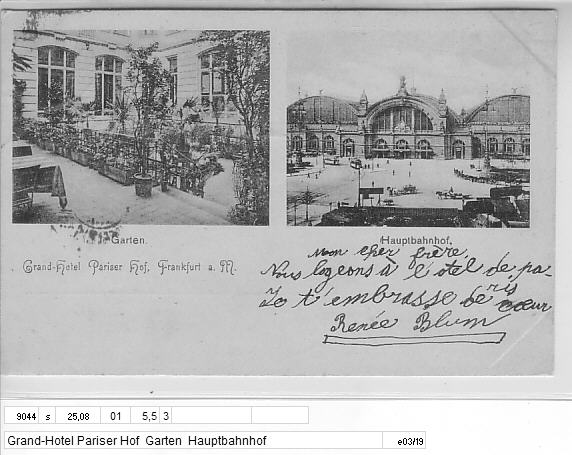 Garten.
Hauptbahnhof,
Grand-Hotel Pariser Hof, Frankfurt a. M.
Mon cher frère
Nous logeons à l'otel de pa-
ris
Je t'embrasse de cœur
Renée Blum
9044 s 25,08 01 5,5 3
Grand-Hotel Pariser Hof Garten Hauptbahnhof e03/19